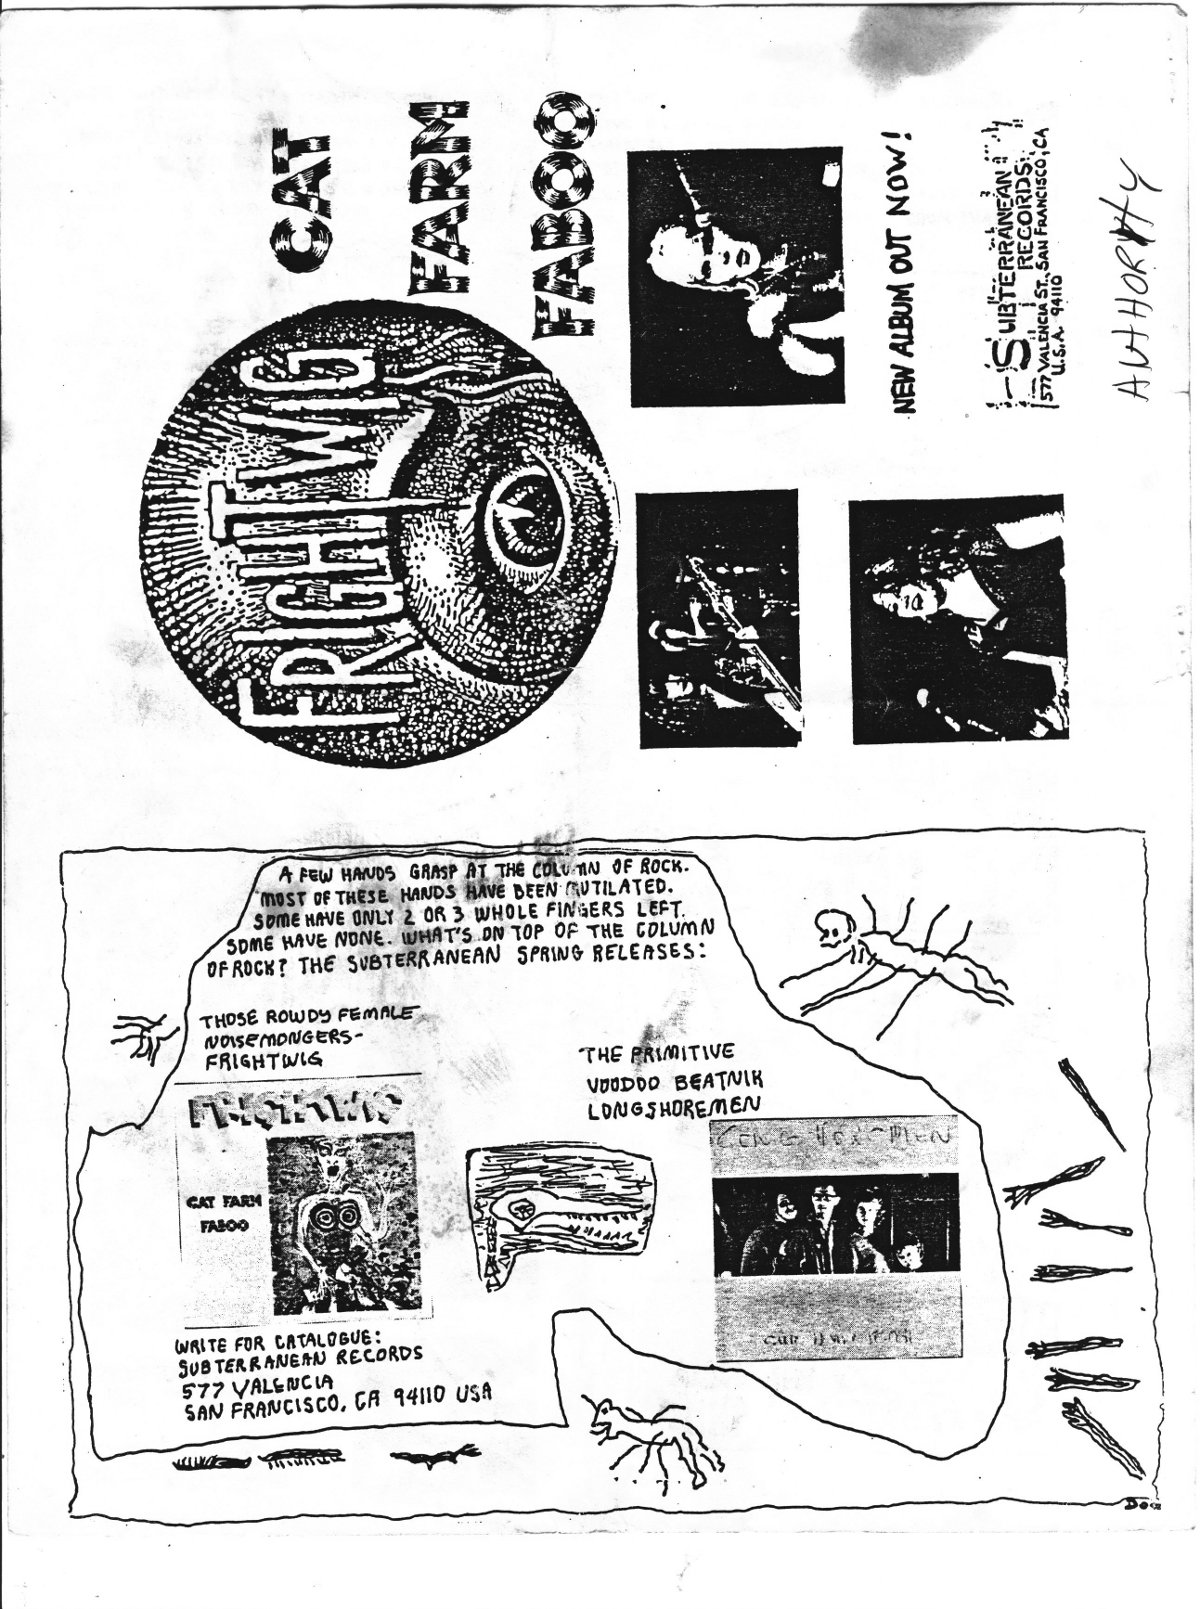 FRIGHTWIG
CAT
FARM
FABOO
NEW ALBUM OUT NOW!
SUBTERRANEAN
RECORDS
577 VALENCIA ST., SAN FRANCISCO, CA
U.S.A. 94110
AUTHORITY
A FEW HANDS GRASP AT THE COLUMN OF ROCK.
MOST OF THESE HANDS HAVE BEEN MUTILATED.
SOME HAVE ONLY 2 OR 3 WHOLE FINGERS LEFT.
SOME HAVE NONE. WHAT'S ON TOP OF THE COLUMN
OF ROCK? THE SUBTERRANEAN SPRING RELEASES:
THOSE ROWDY FEMALE
NOISEMONGERS-
FRIGHTWIG
FRIGHTWIG
CAT FARM
FABOO
WRITE FOR CATALOGUE:
SUBTERRANEAN RECORDS
577 VALENCIA
SAN FRANCISCO, CA 94110 USA
THE PRIMITIVE
VOODOO BEATNIK
LONGSHOREMEN
LONGSHOREMEN